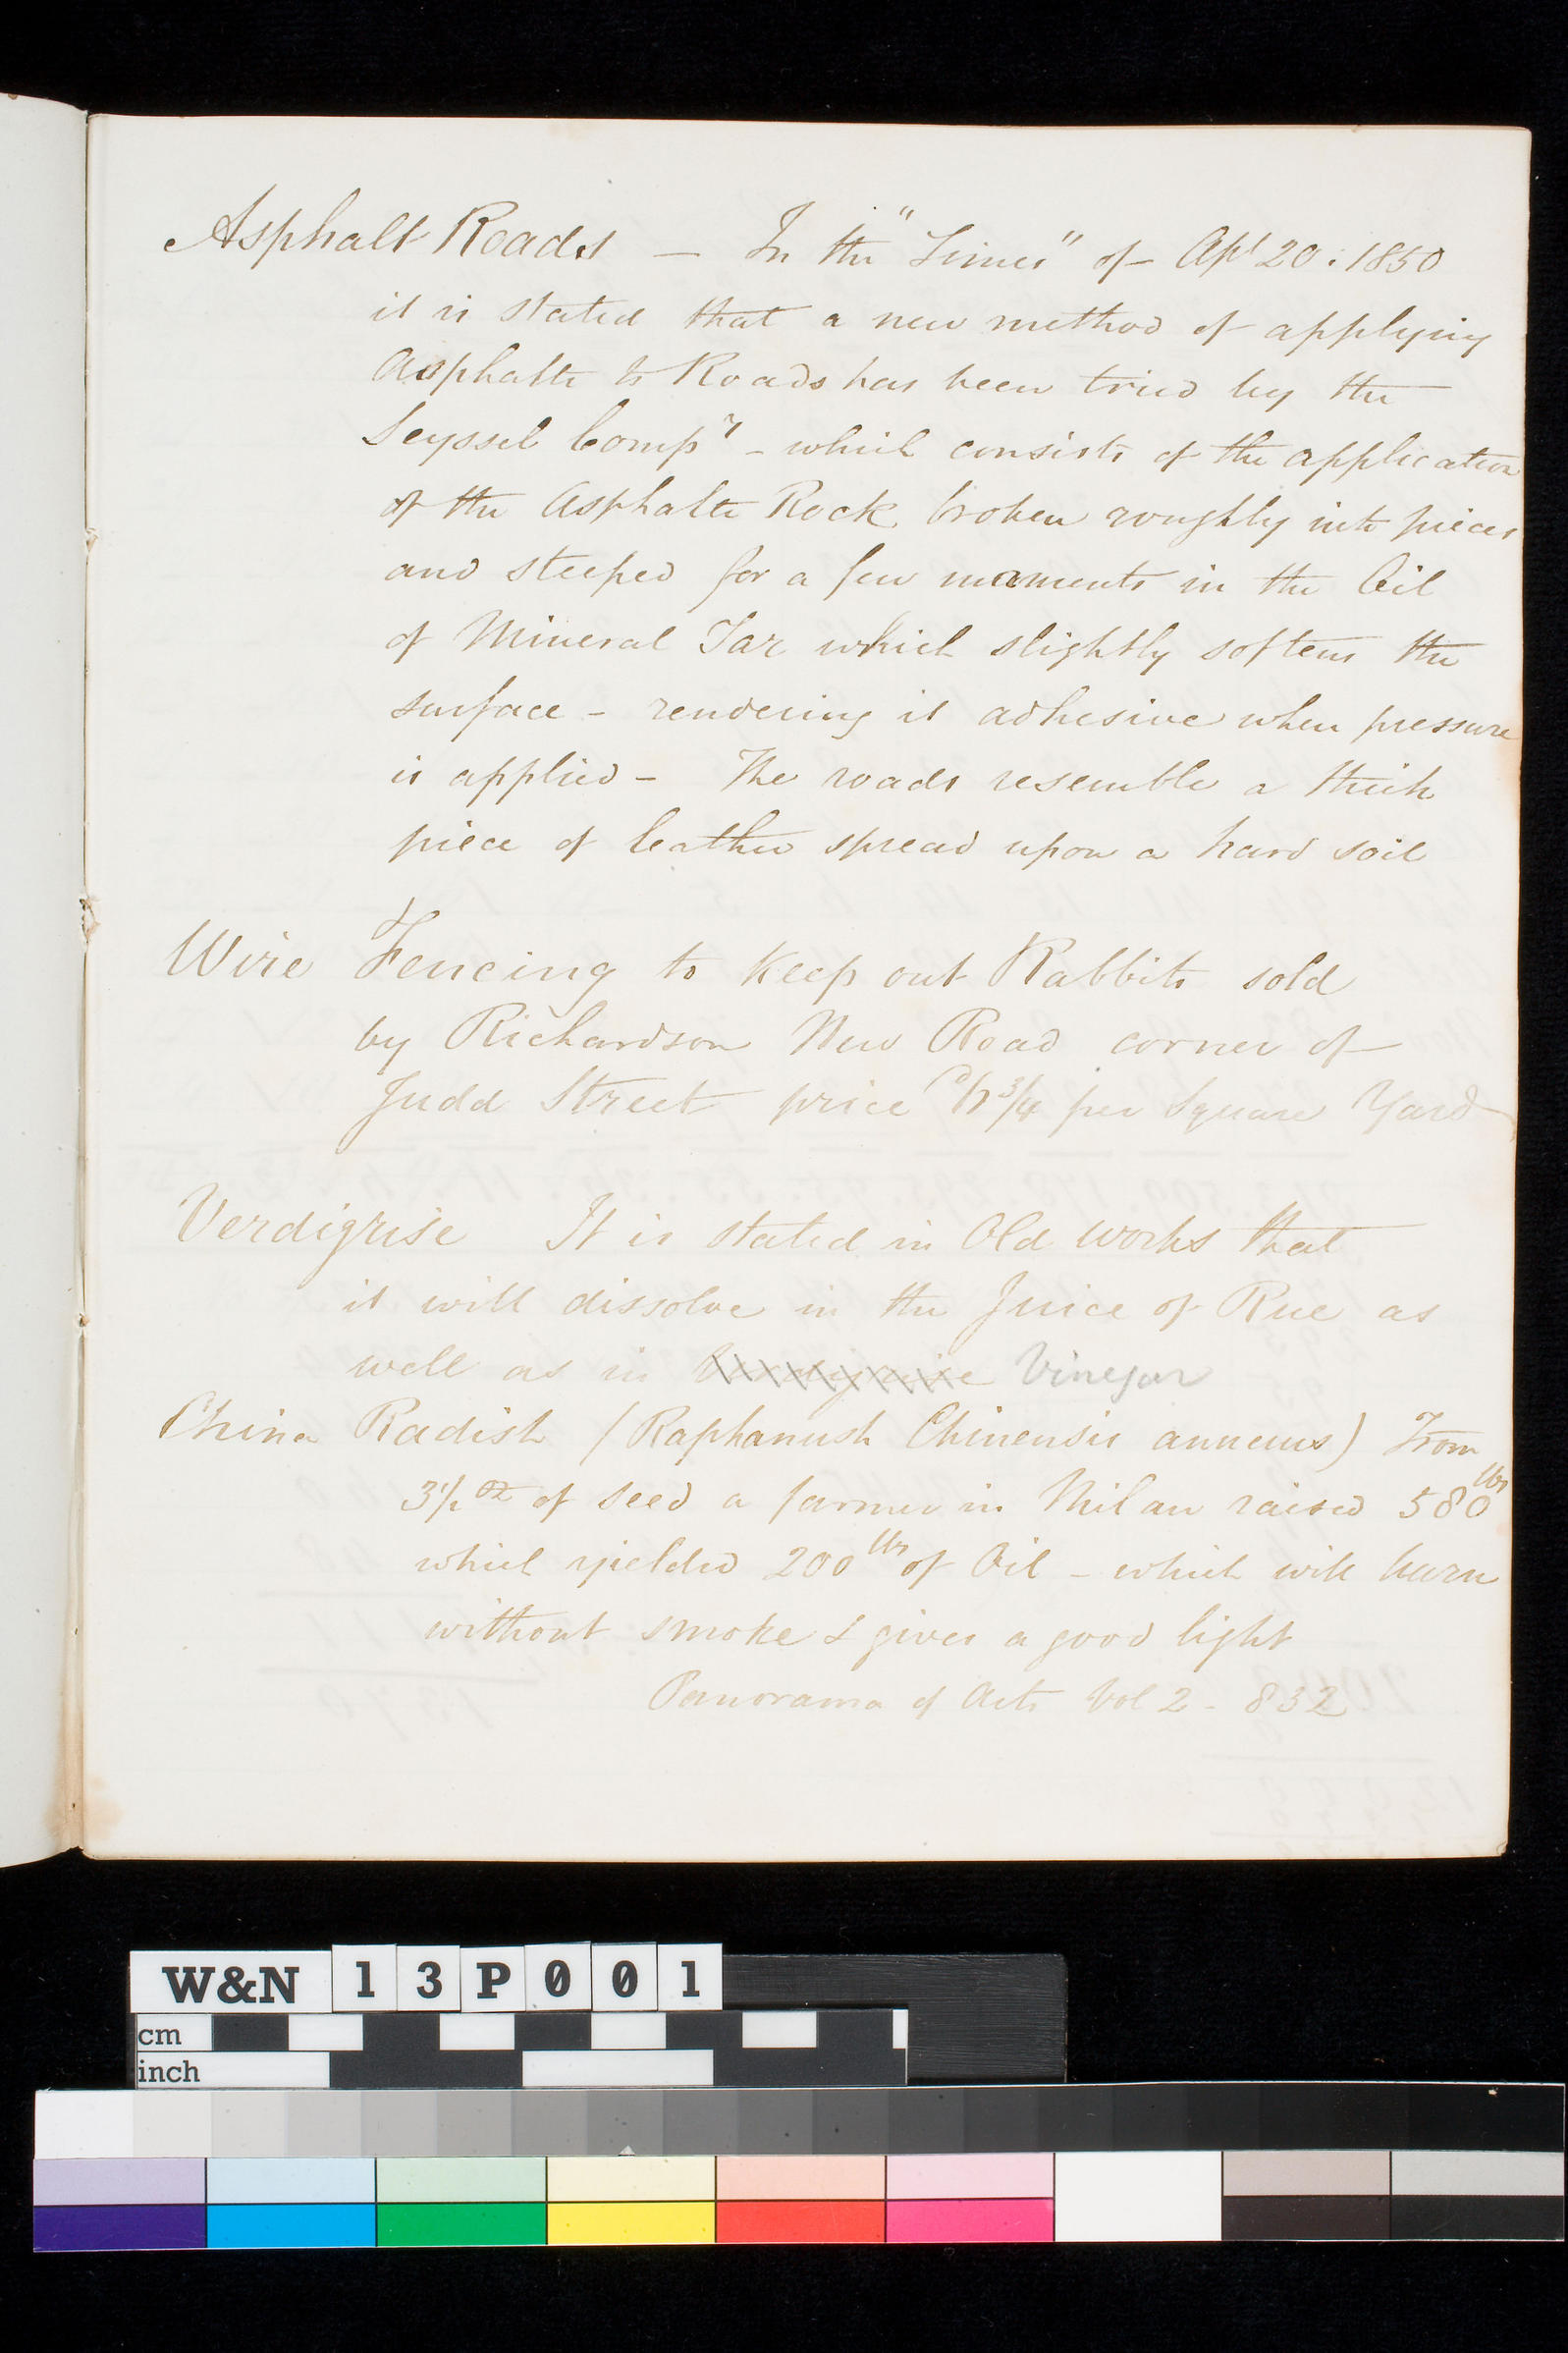 Asphalt Roads — In the "Times" of Apl 20. 1850
it is stated that a new method of applying
Asphalte to Roads has been tried by the
Seyssel Compy - which consists of the application
of the Asphalte Rock broken roughly into pieces
and steeped for a few moments in the Oil
of Mineral Tar which slightly softens the
surface - rendering it adhesive when pressure
is applied - The roads resemble a thick
piece of leather spread upon a hard soil
Wire Fencing to keep out Rabbits sold
by Richardson New Road corner of
Judd Street price per Square Yard
Verdigrise It is stated in Old works that
it will dissolve in the Juice of Rue as
well as in Verdigrise Vinegar
China Radish (Raphanush Chinensis annuus) From
3½ oz of seed a farmer in Milan raised 580 lbs
which yielded 200 lbs of Oil - which will burn
without smoke & gives a good light
Panorama of Arts Vol 2 - 832
W&N 13P001
cm
inch